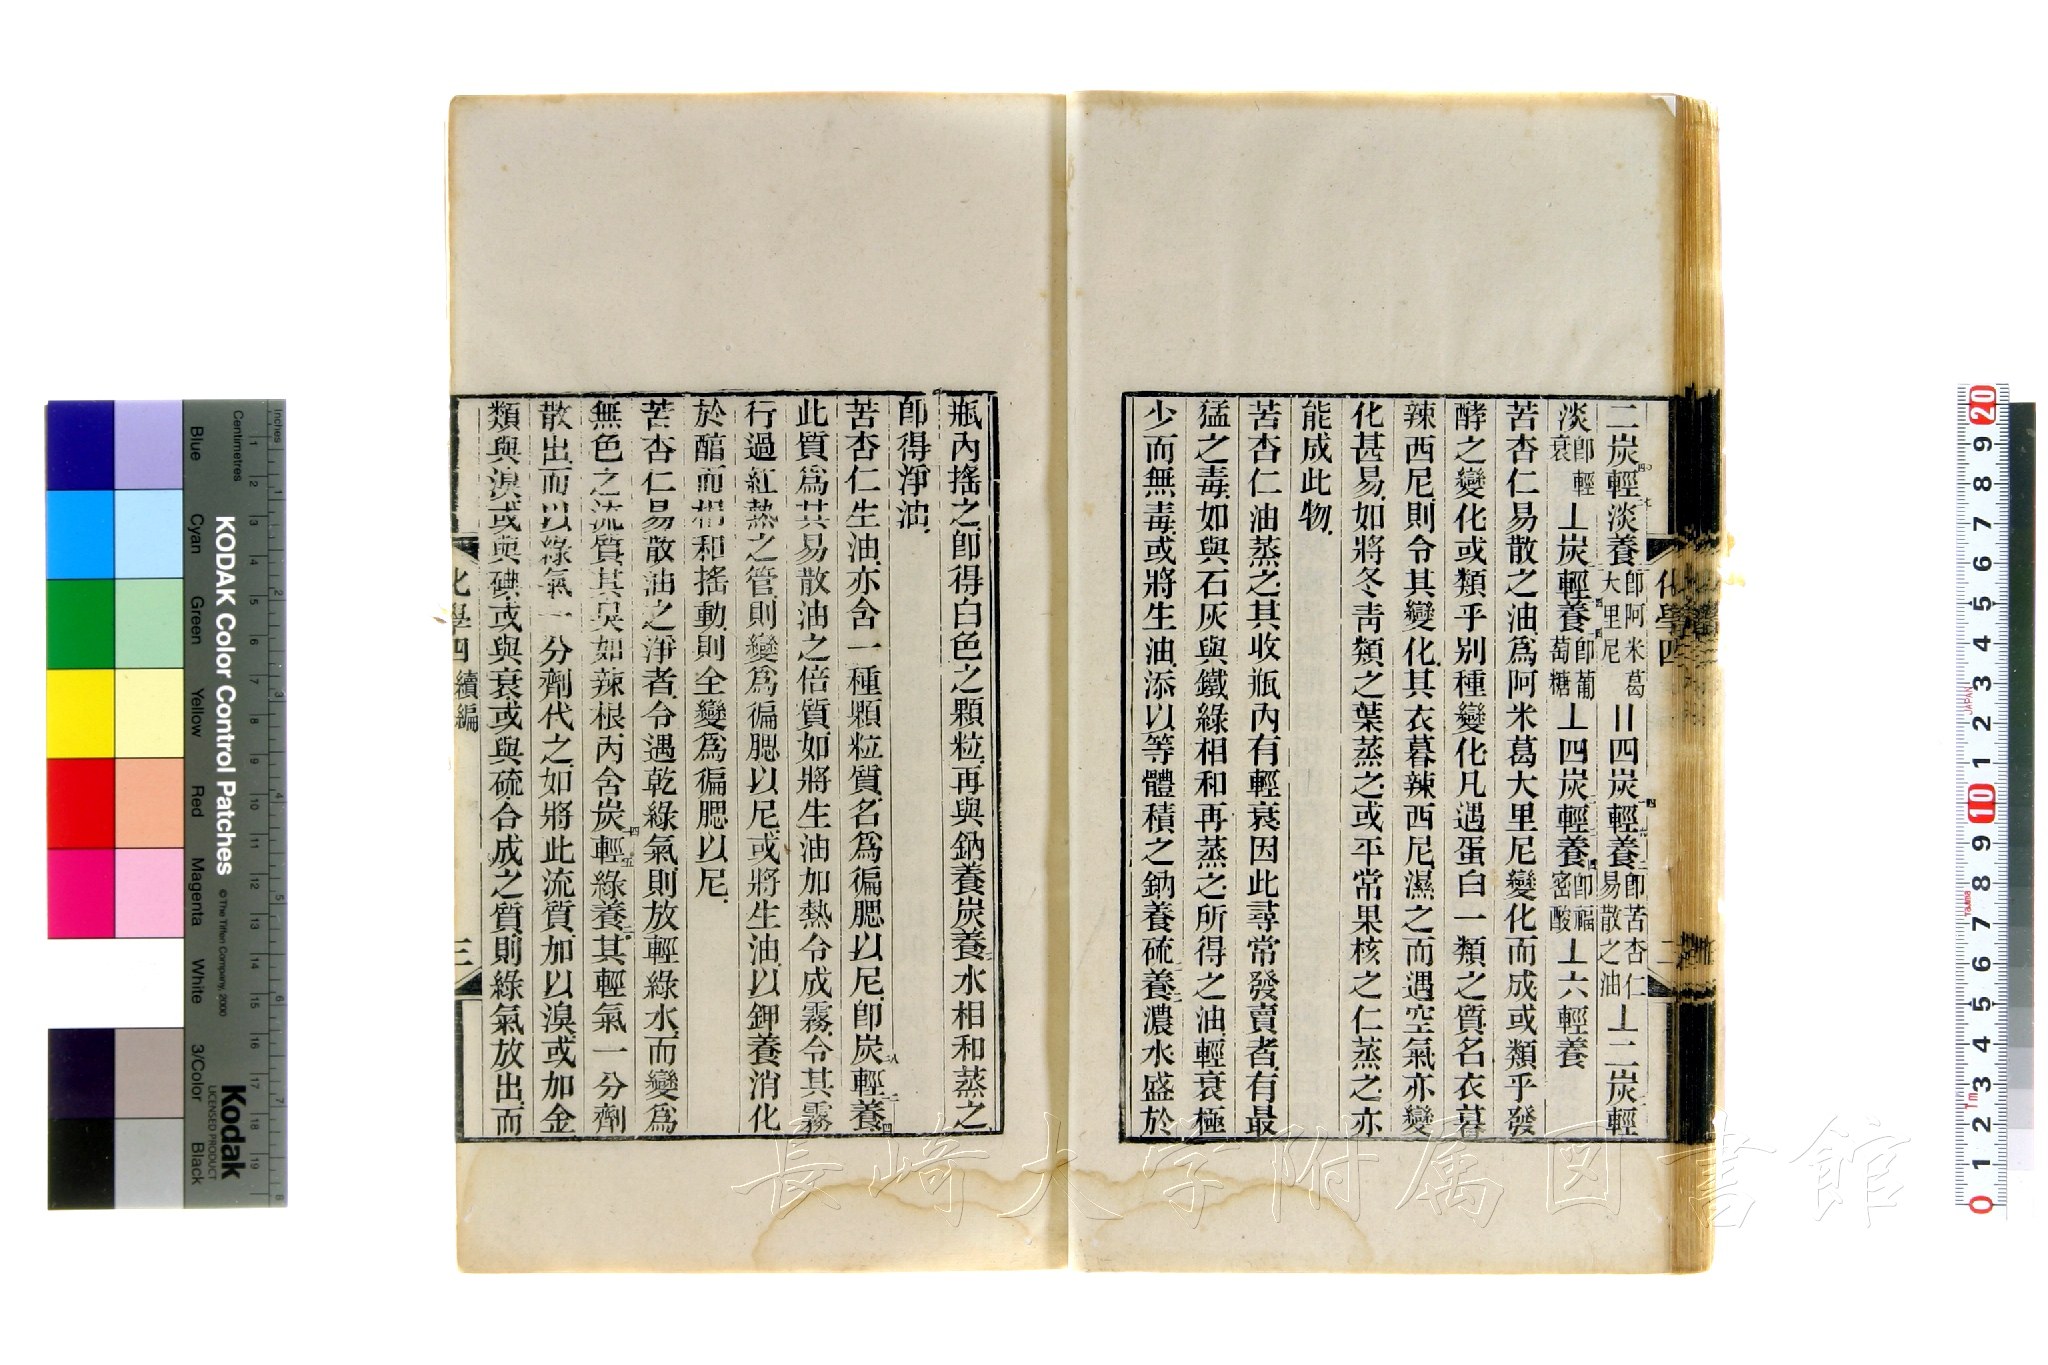 二炭輕淡養卽阿米葛大里尼〢四炭輕養卽苦杏仁易散之油⊥二炭輕
淡卽輕衰⊥炭輕養卽葡萄糖⊥四炭輕養卽福密酸⊥六輕養
苦杏仁易散之油爲阿米葛大里尼變化而成或類乎發
酵之變化或類乎別種變化凡遇蛋白一類之質名衣暮
辣西尼則令其變化其衣暮辣西尼濕之而遇空氣亦變
化甚易如將冬靑類之葉蒸之或平常果核之仁蒸之亦
能成此物
苦杏仁油蒸之其收瓶內有輕衰因此尋常發賣者有最
猛之毒如與石灰與鐵綠相和再蒸之所得之油輕衰極
少而無毒或將生油添以等體積之鈉養硫養濃水盛於
化學四
二
瓶內搖之卽得白色之顆粒再與鈉養炭養水相和蒸之
卽得淨油
苦杏仁生油亦含一種顆粒質名爲徧腮以尼卽炭輕養
此質爲其易散油之倍質如將生油加熱令成霧令其霧
行過紅熱之管則變爲徧腮以尼或將生油以鉀養消化
於醕而相和搖動則全變爲徧腮以尼
苦杏仁易散油之淨者令遇乾綠氣則放輕綠水而變爲
無色之流質其臭如辣根內含炭輕綠養其輕氣一分劑
散出而以綠氣一分劑代之如將此流質加以溴或加金
類與溴或與碘或與衰或與硫合成之質則綠氣放出而
化學四 續編
三
KODAK Color Control Patches
© The Tiffen Company, 2000
Kodak
LICENSED PRODUCT
Inches
Centimetres
Blue
Cyan
Green
Yellow
Red
Magenta
White
3/Color
Black
長崎大学附属図書館
JAPAN